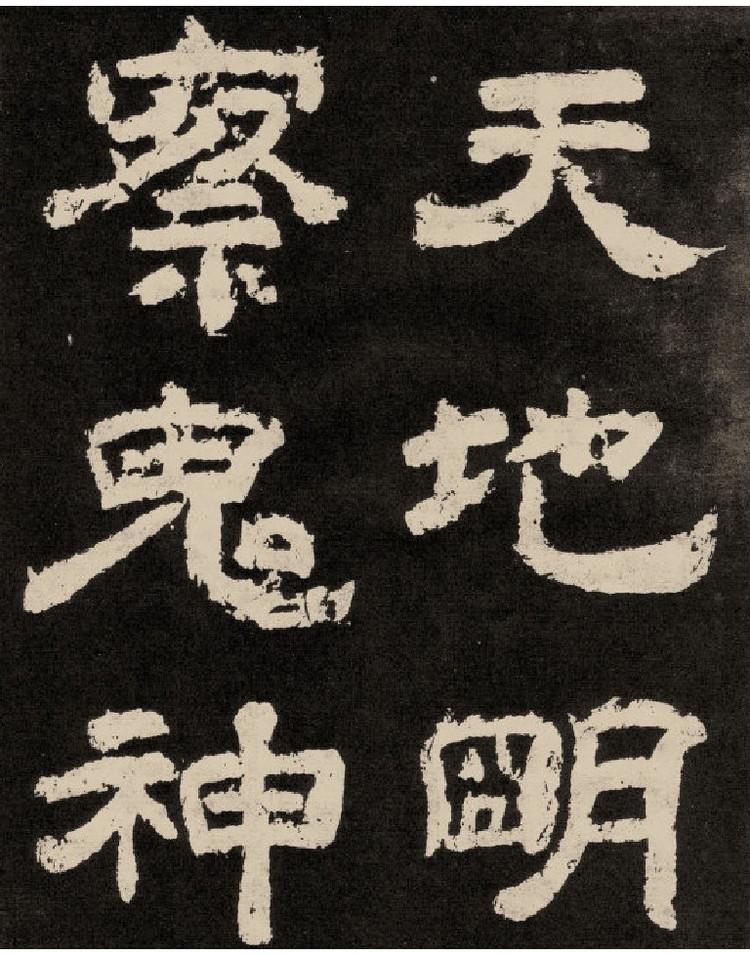 天地明
察鬼神